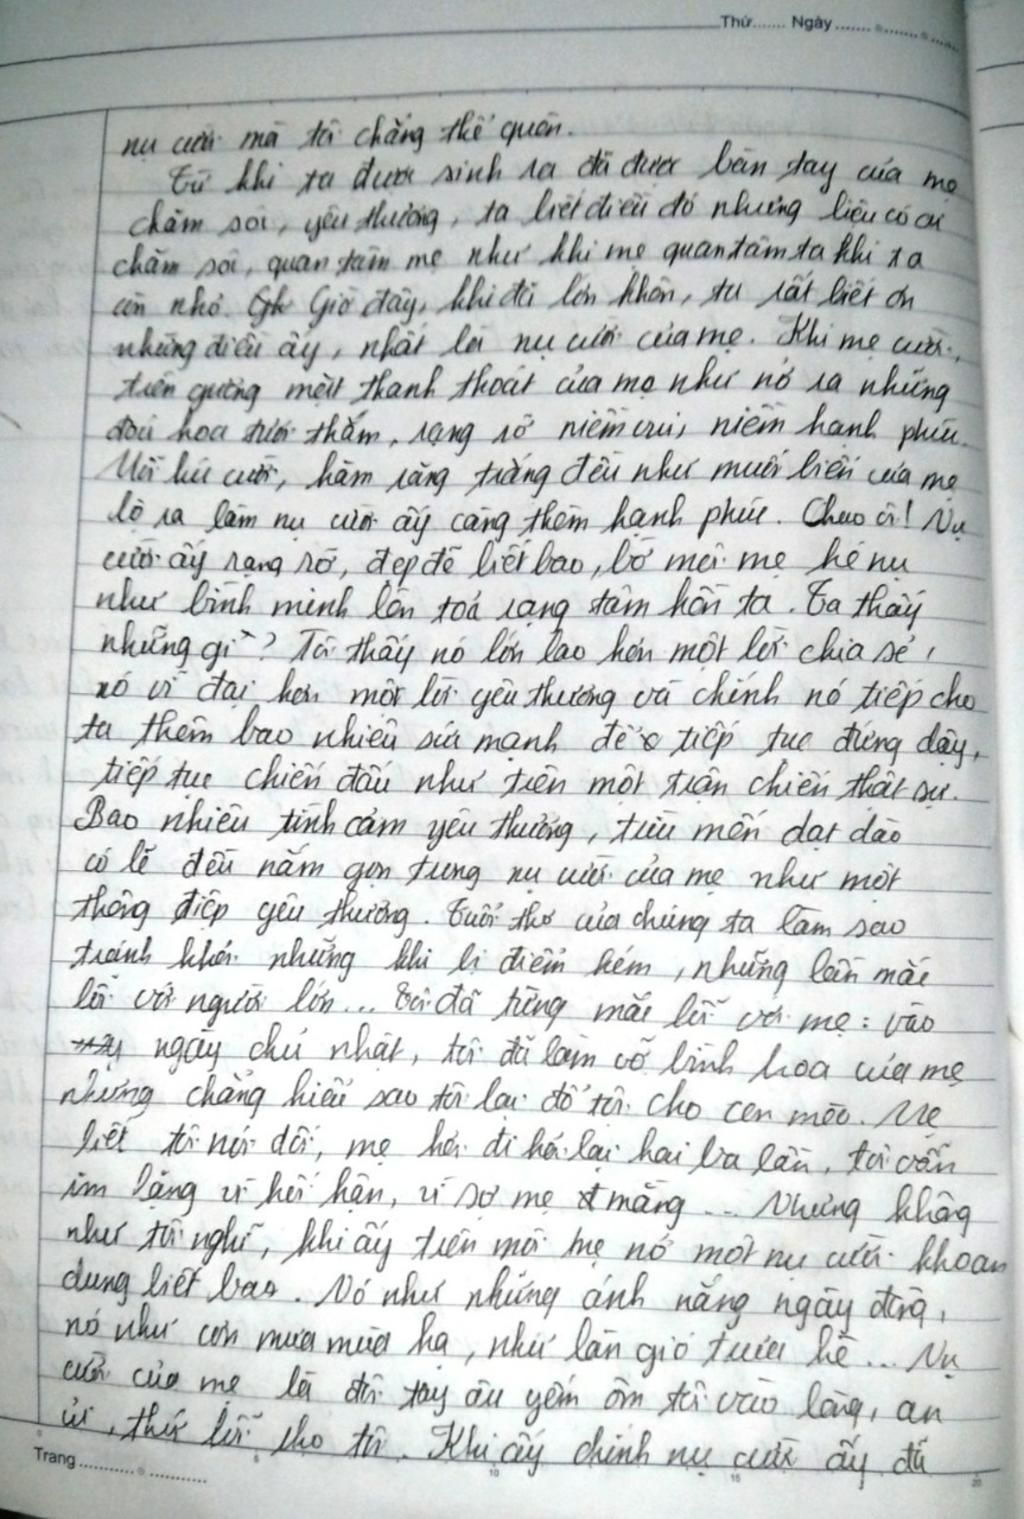 Thứ....... Ngày.......
nụ cười mà tôi chẳng thể quên.
Từ khi ta được sinh ra đã được bàn tay của mẹ
chăm sóc, yêu thương, ta biết điều đó nhưng liệu có ai
chăm sóc, quan tâm mẹ như khi mẹ quan tâm ta khi ta
còn nhỏ. Giờ đây, khi đã lớn khôn, ta rất biết ơn
những điều ấy, nhất là nụ cười của mẹ. Khi mẹ cười,
trên gương mặt thanh thoát của mẹ như nở ra những
đoá hoa tươi thắm, rạng rỡ niềm vui, niềm hạnh phúc.
Mỗi lúc cười, hàm răng trắng đều như muối biển của mẹ
lộ ra làm nụ cười ấy càng thêm hạnh phúc. Chao ôi! Nụ
cười ấy rạng rỡ, đẹp đẽ biết bao, bờ môi mẹ hé nụ
như bình minh lên toả rạng tâm hồn ta. Ta thấy
những gì? Tôi thấy nó lớn lao hơn một lời chia sẻ,
nó vĩ đại hơn một lời yêu thương và chính nó tiếp cho
ta thêm bao nhiêu sức mạnh để tiếp tục đứng dậy,
tiếp tục chiến đấu như trên một trận chiến thật sự.
Bao nhiêu tình cảm yêu thương, trìu mến dạt dào
có lẽ đều nằm gọn trong nụ cười của mẹ như một
thông điệp yêu thương. Tuổi thơ của chúng ta làm sao
tránh khỏi những khi bị điểm kém, những lần mắc
lỗi với người lớn... Tôi đã từng mắc lỗi với mẹ: vào
ngày chủ nhật, tôi đã làm vỡ bình hoa của mẹ
nhưng chẳng hiểu sao tôi lại đổ tội cho con mèo. Mẹ
biết tôi nói dối, mẹ hỏi đi hỏi lại hai ba lần, tôi vẫn
im lặng vì hối hận, vì sợ mẹ mắng... Nhưng không
như tôi nghĩ, khi ấy trên môi mẹ nở một nụ cười khoan
dung biết bao. Nó như những ánh nắng ngày đông,
nó như cơn mưa mùa hạ, như làn gió trưa hè... Nụ
cười của mẹ là đôi tay âu yếm ôm tôi vào lòng, an
ủi, thứ lỗi cho tôi. Khi ấy chính nụ cười ấy đã
Trang..........
5 10 15 20